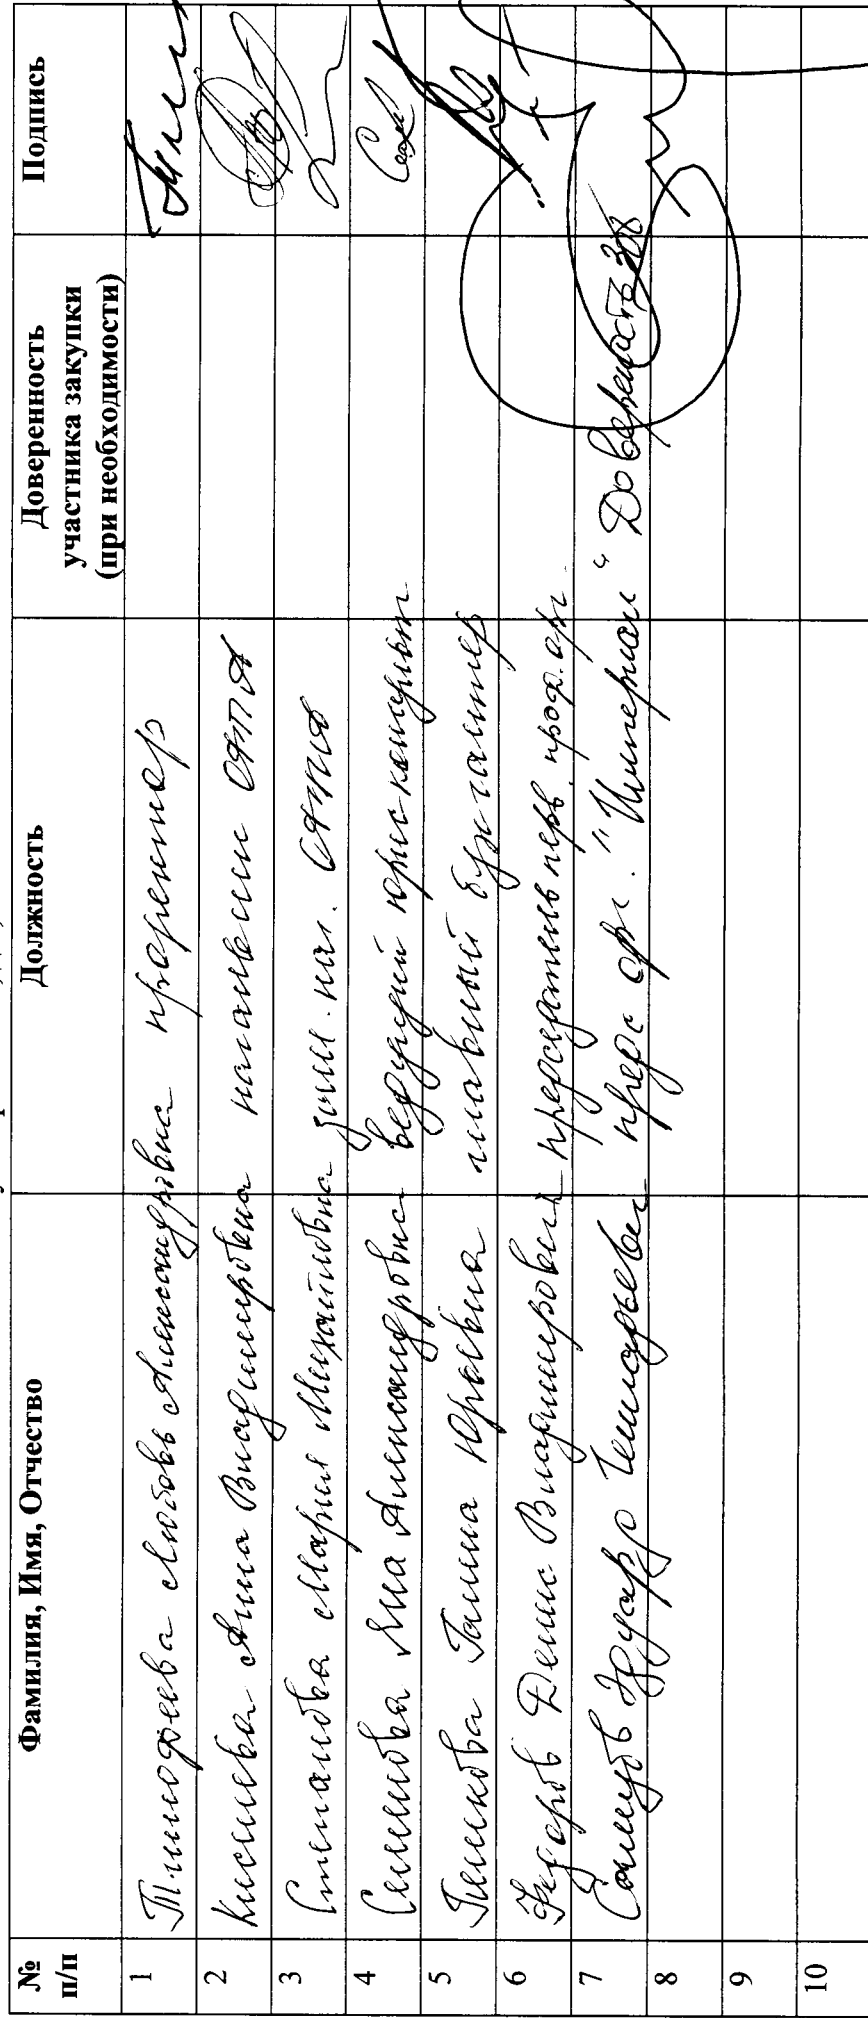 № п/п Фамилия, Имя, Отчество Должность Доверенность участника закупки (при необходимости) Подпись
1 Тимофеева Любовь Александровна проректор
2 Киселева Анна Владимировна начальник
3 Степанова Мария Михайловна зам. нач.
4 Семенова Яна Александровна ведущий юрисконсульт
5 Галина Юрьевна главный бухгалтер
6 Федоров Денис Владимирович председатель перв. проф. орг.
7 Эдуард Геннадьевич предс орг. "Империал" Довереность
8
9
10